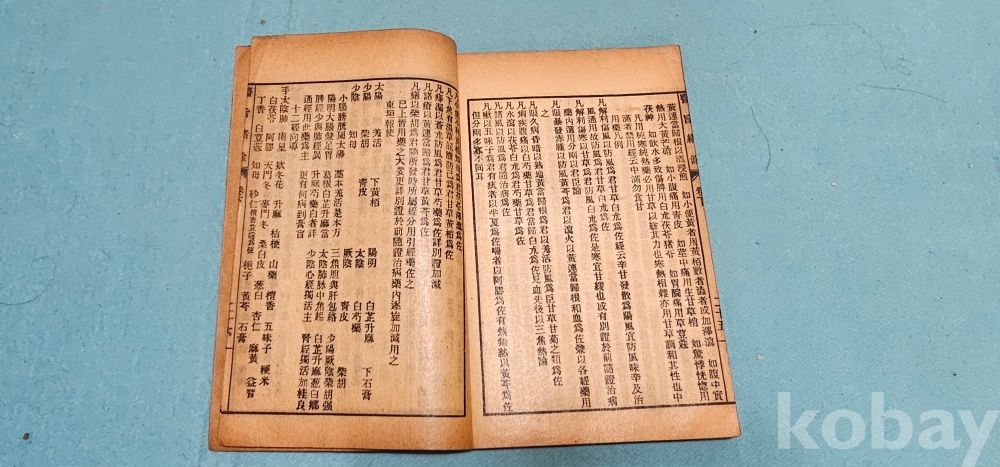 黃連當歸根以酒浸用 如小便黃者用黃栢數者濇者或加澤瀉 如腹中實
熱用大黃芒硝 如小腹痛用青皮 如莖中痛用生甘草稍 如胃脘痛用草荳蔻 如驚悸恍惚用
茯神 如飲水多致傷脾用白朮茯苓猪苓
凡用純寒純熱藥必用甘草以緩其力也寒熱相雜亦用甘草調和其性也中
滿者禁用經云中滿勿食甘
用藥凡例
風通用故防風爲君甘草白朮爲佐經云辛甘發散爲陽風宜防風味辛及治
凡解利傷風以防風爲君甘草白朮爲佐
凡解利傷寒以甘草爲君防風白朮爲佐是寒宜甘緩也或有別證於前隨證治病
藥內選用分兩以君臣論
凡眼暴發赤腫以防風黃芩爲君以瀉火以黃連當歸根和血爲佐兼以各經藥用
之
凡眼久病昏暗以熟地黃當歸根爲君以羌活防風爲臣甘草甘菊之類爲佐
凡痢疾腹痛以白芍藥甘草爲君當歸白朮爲佐見血先後以三焦熱論
凡水瀉以茯苓白朮爲君芍藥甘草爲佐
凡嗽以五味子爲君有痰者以半夏爲佐喘者以阿膠爲佐有熱無熱以黃芩爲佐
但分兩多寡不同耳
二十五
凡下焦有濕草龍膽防己爲君甘草黃栢爲佐
凡痔漏以蒼朮防風爲君甘草芍藥爲佐詳別證加減
凡諸瘡以黃連當歸爲君甘草黃芩爲佐
凡瘧以柴胡爲君隨所發時所屬經分用引經藥佐之
已上皆用藥之大要更詳別證於前隨證治病藥內逐旋加減用之
東垣報使
太陽 羌活 下黃栢 陽明 白芷升麻 下石膏
少陽 柴胡 青皮 太陰 白芍藥
少陰 知母 厥陰 青皮 柴胡
小腸膀胱屬太陽 藁本羌活是本方 三焦胆與肝包絡 少陽厥陰柴胡强
陽明大腸兼足胃 葛根白芷升麻當 太陰肺脉中焦起 白芷升麻葱白鄕
脾經少與肺經異 升麻芍藥白者詳 少陰心經獨活主 腎經獨活加桂良
通經用此藥爲主 更有何病到膏肓
十二經向導
手太陰肺 南星 欵冬花 升麻 桔梗 山藥 檀香 五味子 粳米
白茯苓 阿膠 天門冬 麥門冬 桑白皮 葱白 杏仁 麻黃 益智
丁香 白荳蔻 知母 砂仁 梔子 黃芩 石膏
二十六
kobay